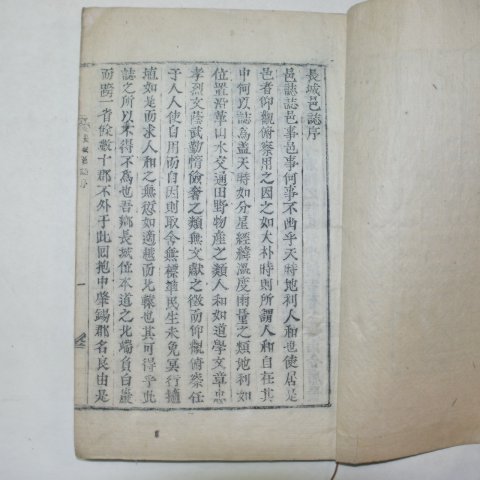 長城邑誌序
邑誌誌邑事邑事何事不酉乎天時地利人和也使居是
邑者仰觀俯察用之因之如大朴時則所謂人和自在其
中何以誌爲蓋天時如分星經緯溫度雨量之類地利如
位置沿革山水交通田野物産之類人和如道學文章忠
孝烈文蔭武勤惰儉奢之類無文獻之徵而仰觀俯察任
于人人使自用而自因則取舍無標準民生未免冥行擿
埴如是而求人和之無愆如適越而北轅也其可得乎此
誌之所以不得不爲也吾鄕長城位本道之北端負白巖
而跨一省餘數十郡不外于此回抱中肇錫郡名良由是